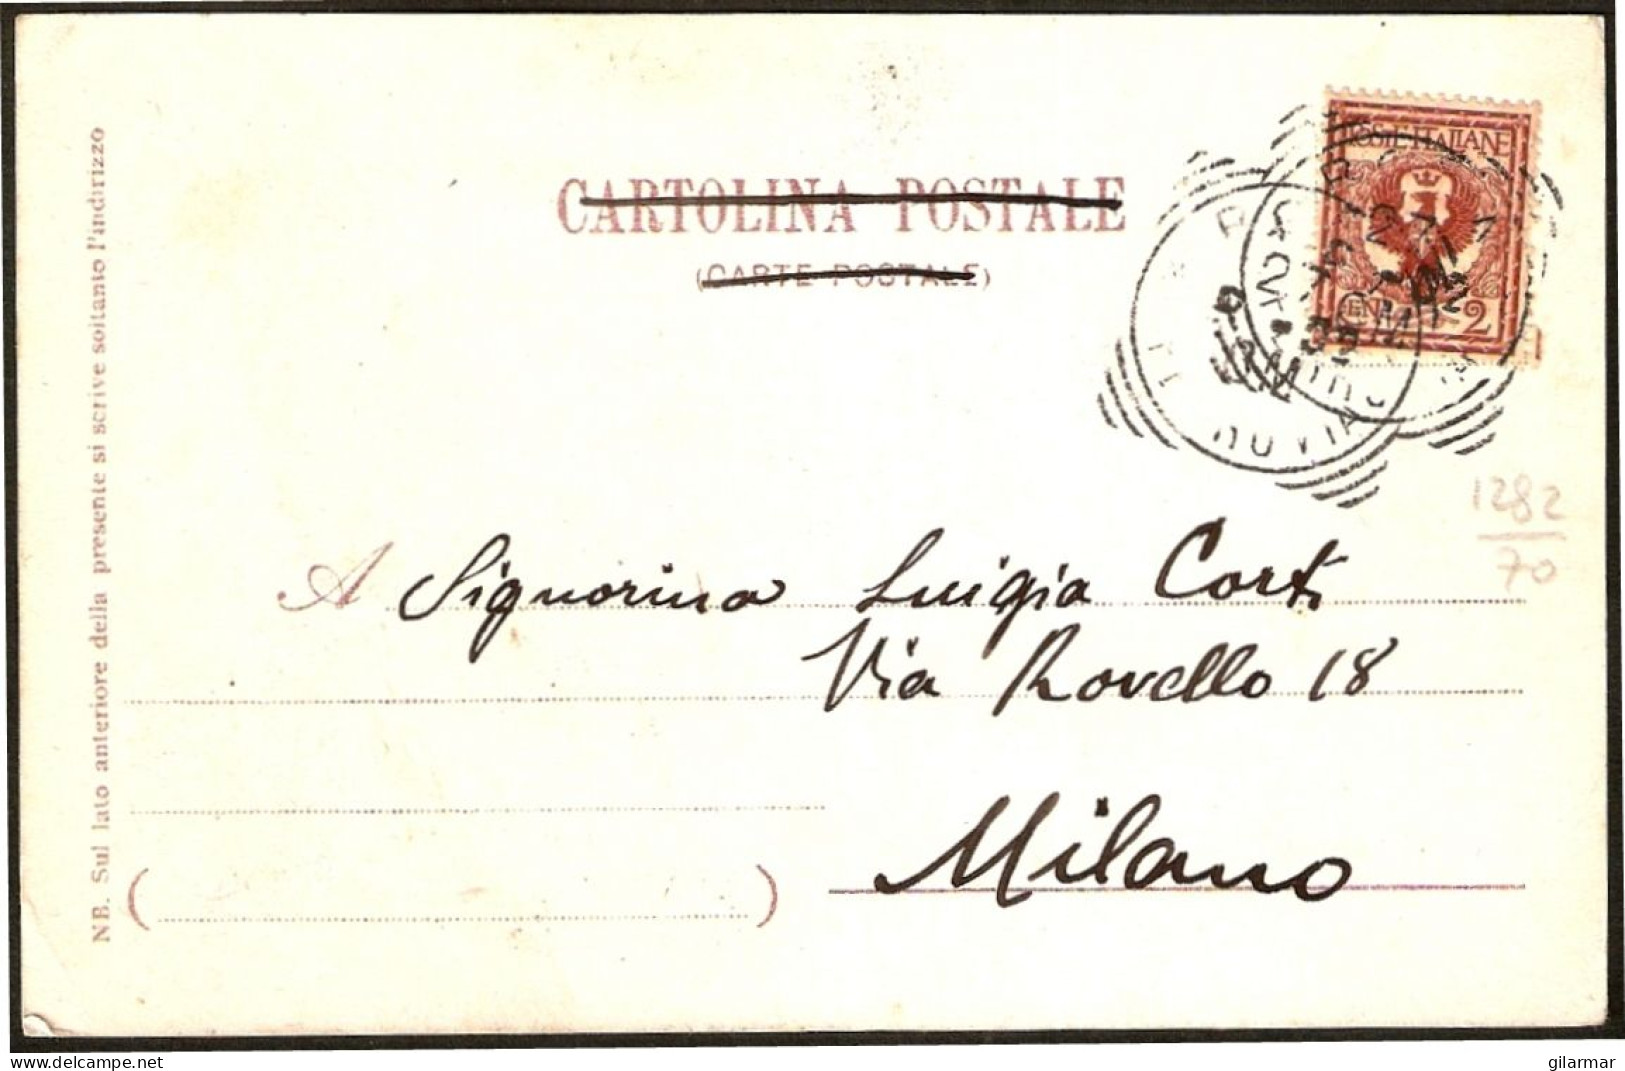 CARTOLINA POSTALE
(CARTE POSTALE)
POSTE ITALIANE
CENT. 2
1282
70
A Signorina Luigia Corti
Via Rovello 18
Milano
NB. Sul lato anteriore della presente si scrive soltanto l'indirizzo
www.delcampe.net
gilarmar